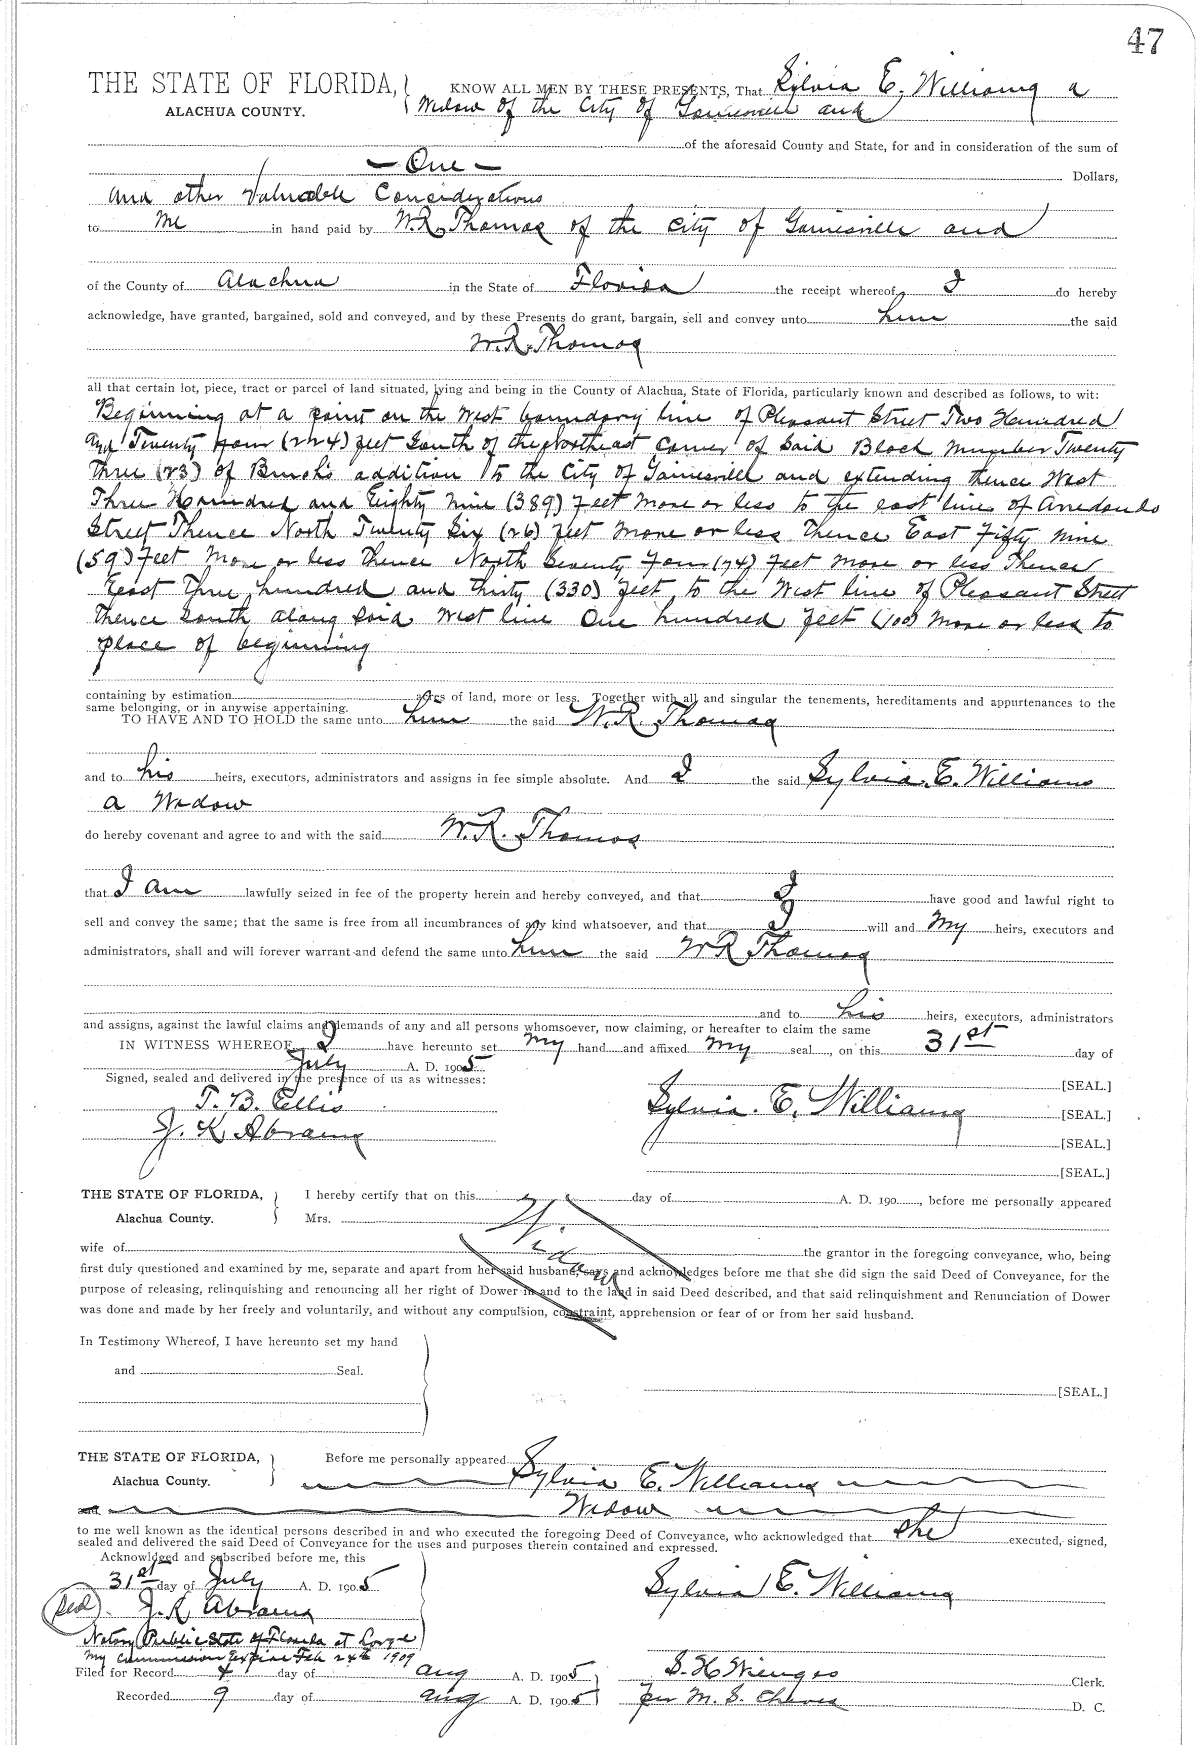 47
THE STATE OF FLORIDA, KNOW ALL MEN BY THESE PRESENTS, That Sylvia E. Williams a
ALACHUA COUNTY. Widow of the City of Gainesville and
of the aforesaid County and State, for and in consideration of the sum of
— One — Dollars,
and other valuable Considerations
to me in hand paid by W.R. Thomas of the City of Gainesville and
of the County of Alachua in the State of Florida the receipt whereof I do hereby
acknowledge, have granted, bargained, sold and conveyed, and by these Presents do grant, bargain, sell and convey unto him the said
W.R. Thomas
all that certain lot, piece, tract or parcel of land situated, lying and being in the County of Alachua, State of Florida, particularly known and described as follows, to wit:
Beginning at a point on the West boundary line of Pleasant Street Two Hundred
and Twenty four (224) feet South of the Northeast Corner of Said Block Number Twenty
three (23) of Brush's addition to the City of Gainesville and extending thence West
Three Hundred and Eighty nine (389) feet more or less to the east line of Arredondo
Street Thence North Twenty Six (26) feet more or less thence East Fifty nine
(59) feet more or less thence North Seventy four (74) feet more or less Thence
East Three hundred and thirty (330) feet to the West line of Pleasant Street
thence South along said West line One hundred feet (100) more or less to
place of beginning
containing by estimation acres of land, more or less. Together with all and singular the tenements, hereditaments and appurtenances to the
same belonging, or in anywise appertaining.
TO HAVE AND TO HOLD the same unto him the said W.R. Thomas
and to his heirs, executors, administrators and assigns in fee simple absolute. And I the said Sylvia E. Williams
a Widow
do hereby covenant and agree to and with the said W.R. Thomas
that I am lawfully seized in fee of the property herein and hereby conveyed, and that I have good and lawful right to
sell and convey the same; that the same is free from all incumbrances of any kind whatsoever, and that I will and my heirs, executors and
administrators, shall and will forever warrant and defend the same unto him the said W R Thomas
and to his heirs, executors, administrators
and assigns, against the lawful claims and demands of any and all persons whomsoever, now claiming, or hereafter to claim the same
IN WITNESS WHEREOF, I have hereunto set my hand and affixed my seal, on this 31st day of
July A. D. 1905
Signed, sealed and delivered in the presence of us as witnesses: [SEAL.]
T. B. Ellis Sylvia. E. Williams [SEAL.]
J. K Abrams [SEAL.]
[SEAL.]
THE STATE OF FLORIDA, I hereby certify that on this day of A. D. 190, before me personally appeared
Alachua County. Mrs.
Widow
wife of the grantor in the foregoing conveyance, who, being
first duly questioned and examined by me, separate and apart from her said husband, says and acknowledges before me that she did sign the said Deed of Conveyance, for the
purpose of releasing, relinquishing and renouncing all her right of Dower in and to the land in said Deed described, and that said relinquishment and Renunciation of Dower
was done and made by her freely and voluntarily, and without any compulsion, constraint, apprehension or fear of or from her said husband.
In Testimony Whereof, I have hereunto set my hand
and Seal.
[SEAL.]
THE STATE OF FLORIDA, Before me personally appeared Sylvia E. Williams
Alachua County.
and Widow
to me well known as the identical persons described in and who executed the foregoing Deed of Conveyance, who acknowledged that she executed, signed,
sealed and delivered the said Deed of Conveyance for the uses and purposes therein contained and expressed.
Acknowldged and subscribed before me, this
31st day of July A. D. 1905 Sylvia E. Williams
Seal J. K Abrams
Notary Public State of Florida at Large
My Commission Expires Feb 24th 1909
Filed for Record 4 day of Aug A. D. 1905 S. H Wienges Clerk.
Recorded 9 day of Aug A. D. 1905 per M. S. Cheves D. C.